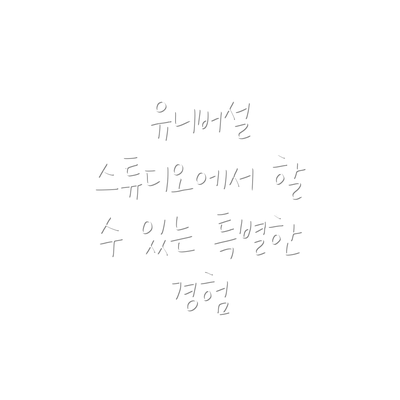 유니버설
스튜디오에서 할
수 있는 특별한
경험